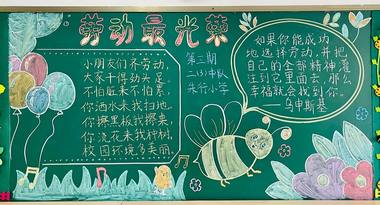 劳动最光荣
小朋友们齐劳动,
大家干得劲头足。
不怕脏来不怕累,
你洒水来我扫地。
你擦黑板我擦桌,
你浇花来我种树,
校园环境多美丽。
第三期
二(3)中队
朱行小学
如果你能成功
地选择劳动,并把
自己的全部精神灌
注到它里面去,那么
幸福就会找到你。
——乌申斯基